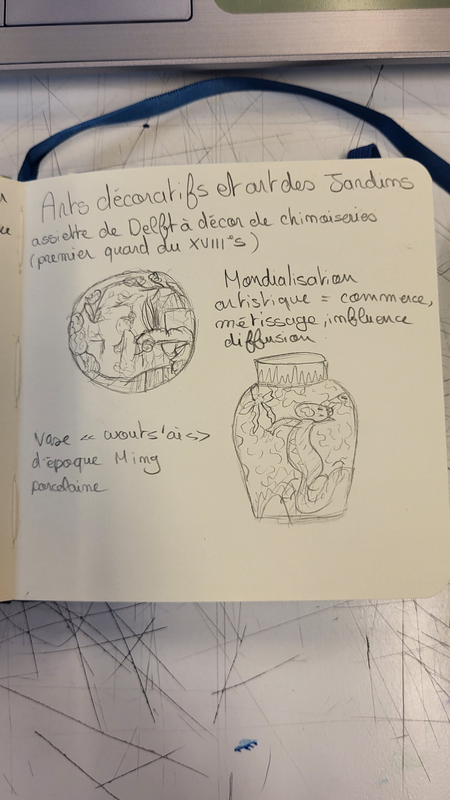 Arts décoratifs et art des Jardins
assiette de Delft à décor de chinoiseries
(premier quart du XVIIIe s)
Mondialisation
artistique = commerce,
métissage, influence
diffusion.
Vase « wouts'ai »
d'époque Ming
porcelaine